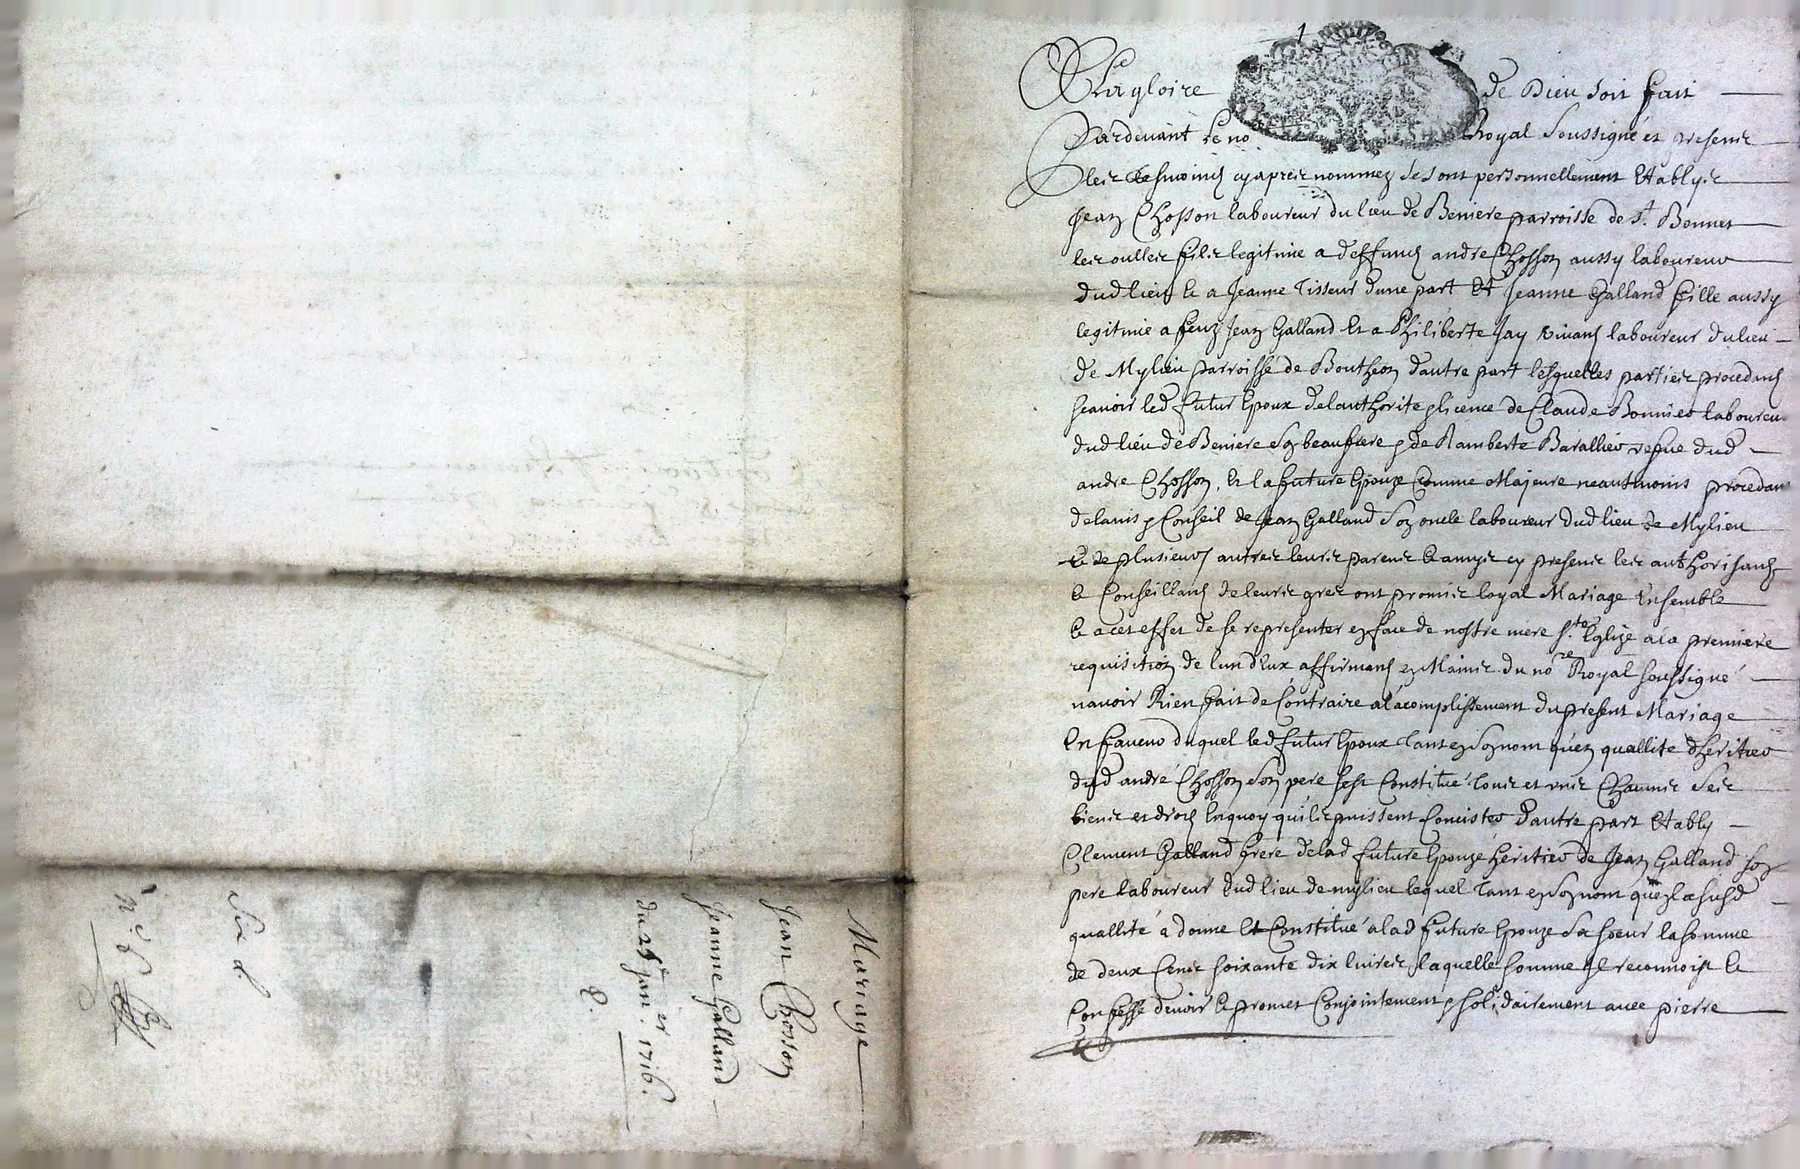 A La gloire de Dieu soit fait
Pardevant le no.re Royal soussigné et presents
les tesmoins cy apres nommez se sont personnellement Etablys
Jean Chosson laboureur du lieu de Beniere parroisse de St. Bonnet
les oulles fils legitime a deffunct andre Chosson aussy laboureur
dud lieu et a Jeanne Tisseur d'une part Et Jeanne Galland fille aussy
legitime a feuz Jean Galland et a Philiberte Jay vivant laboureur du lieu
de Mylieu parroisse de Boutheon dautre part lesquelles parties procedans
scavoir led futur Epoux de lauthorite & licence de Claude Bonnier laboureur
dud lieu de Beniere son beaufrere & de Ramberte Barallier vefve dud
andre Chosson, et la future Epouze comme Majeure neautmoins procedant
de lavis & Conseil de Jean Galland son oncle laboureur dud lieu de Mylieu
et de plusieurs autres leurs parents et amys cy presents les authorisants
et Conseillans de leurs grez ont promis loyal Mariage Ensemble
et a cet effet de se representer en face de nostre mere s.te Eglize a la premiere
requisition de lun d'Eux affirmans es Mains du no.re Royal soussigné
navoir Rien fait de Contraire a l'acomplissement du present Mariage
En faveur duquel led futur Epoux tant en son nom qu'en quallite dheritier
dud andré Chosson son pere sest Constitué tous et uns Chacuns ses
biens et droits Enquoy quils puissent Concister D'autre part Etably
Clement Galland frere de lad future Epouze heritier de Jean Galland son
pere laboureur dud lieu de mylieu lequel tant en son nom quen la susd
quallité a donné Et Constitué a lad future Epouze sa soeur la somme
de deux Cents soixante dix livres laquelle somme Il reconnoist et
Confesse devoir et promet Conjointement & solidairement avec pierre
Mariage
Jean Chosson
Jeanne Galland
du 25 Janer. 1716.
8.